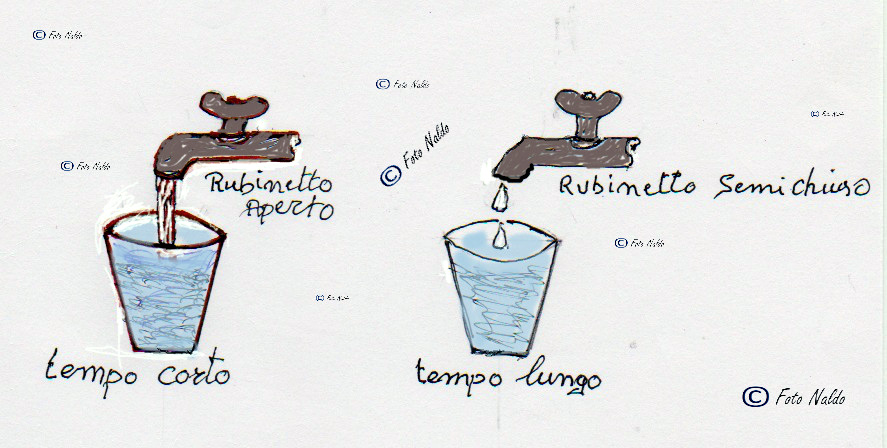 © Foto Naldo
© Foto Naldo
© Foto Naldo
© Foto Naldo
© Foto Naldo
Rubinetto
Aperto
Rubinetto Semichiuso
© Foto Naldo
© Foto Naldo
tempo corto
tempo lungo
© Foto Naldo